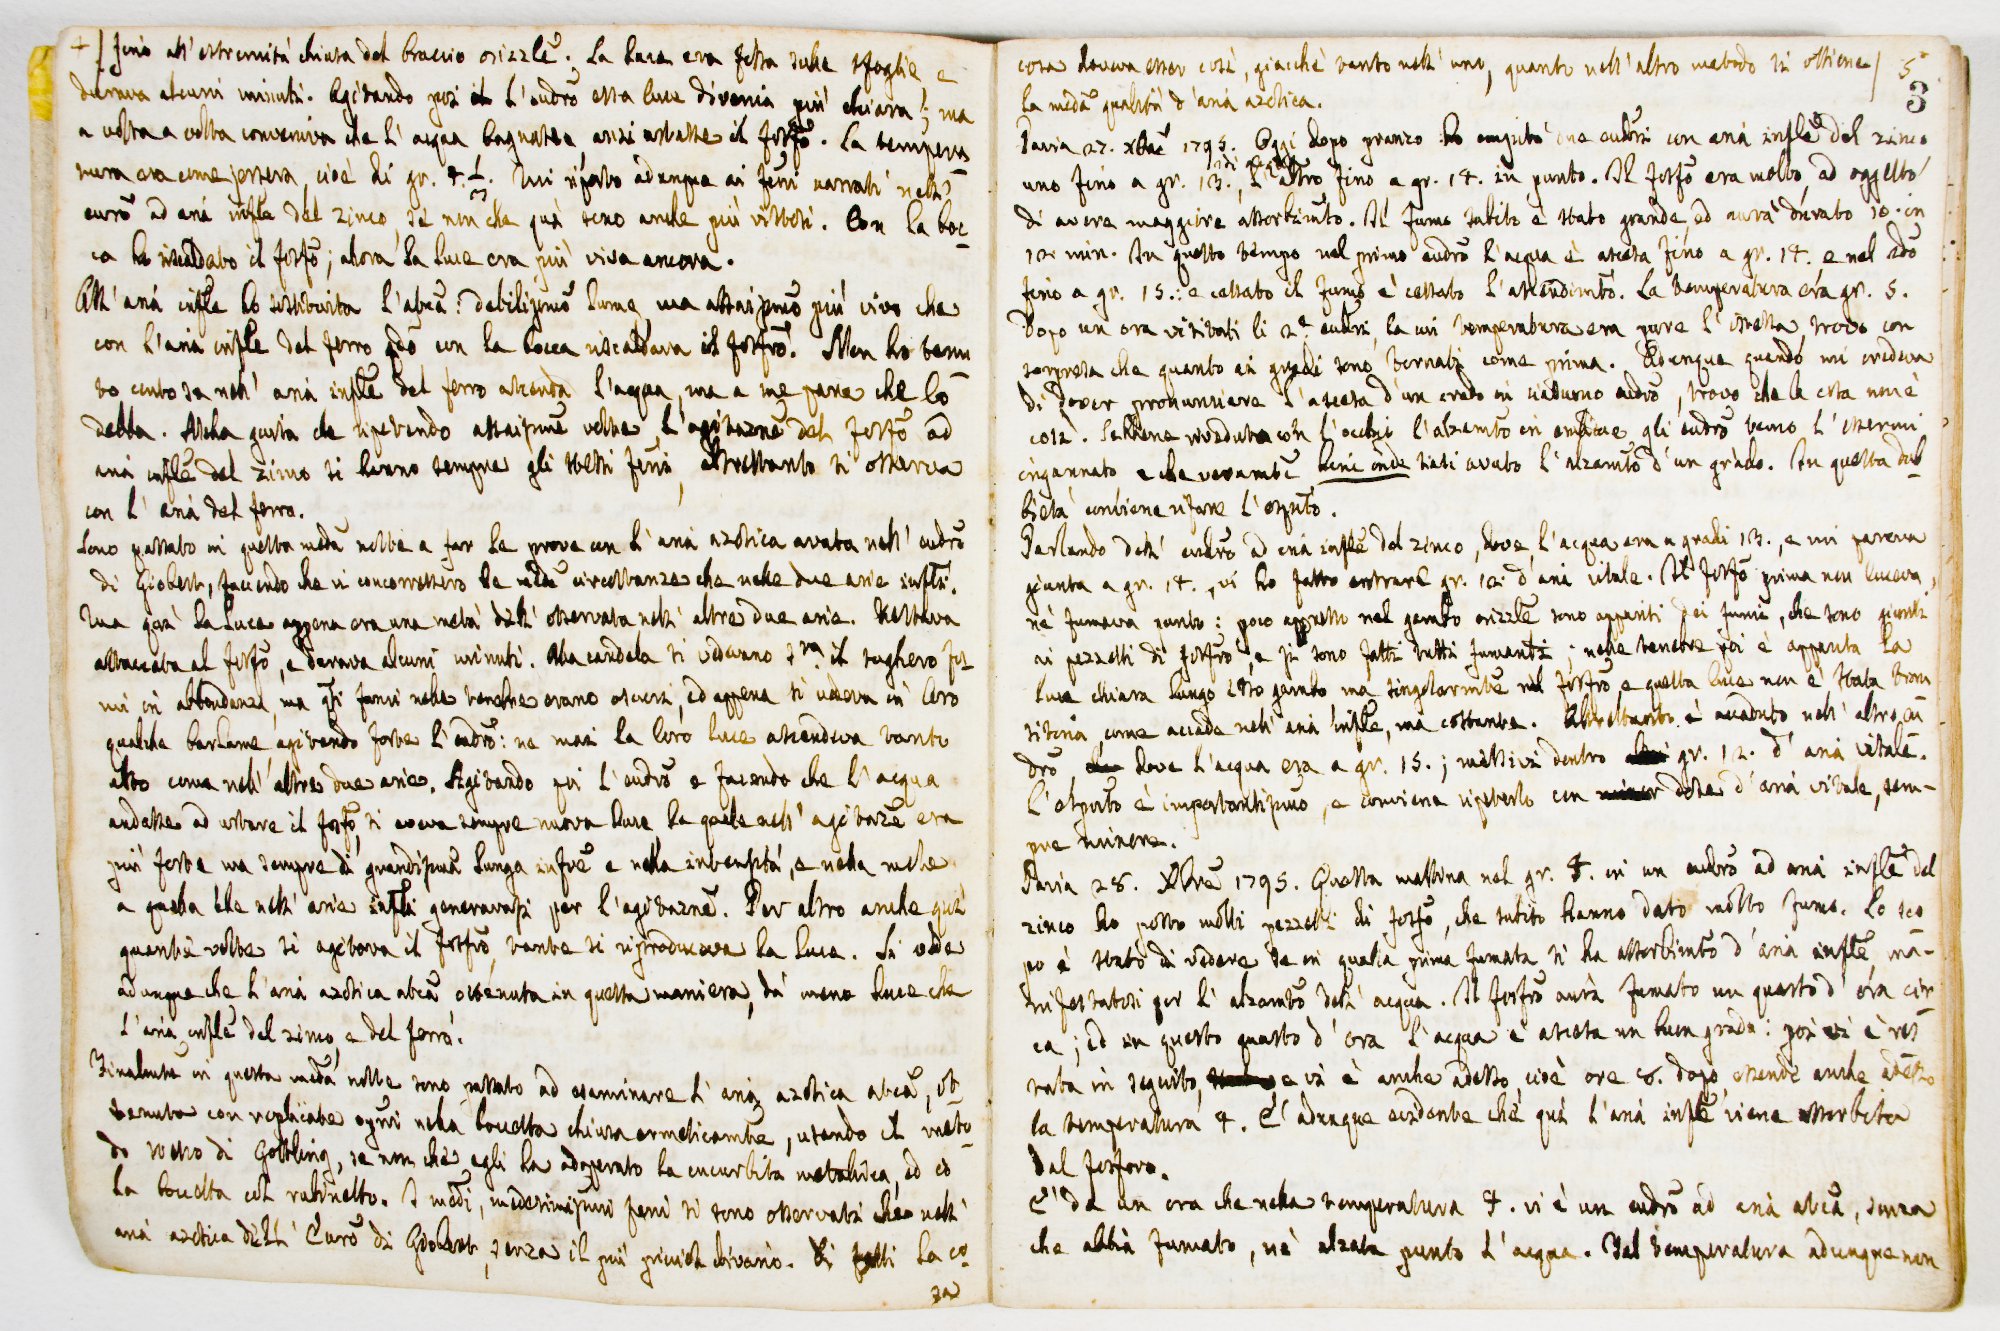 4 / fino all'estremità chiusa del braccio orizzle. La luce era fissa sulle sfoglie, e
durava alcuni minuti. Agitando poi l'eudro essa luce divenia più chiara; ma
a volta a volta conveniva che l'acqua bagnasse, anzi urtasse il fosfo. La tempera
tura era come jersera, cioè di gr. 4. 1/3. Mi riporto adunque ai feni narrati nell'
euro ad aria infle del zinco, se non che quà sono anche più vistosi. Con la boc-
ca ho riscaldato il fosfo; allora la luce era più viva ancora.
All'aria infle ho sostituita l'abca: debilissimo lume, ma assaissmo più vivo che
con l'aria infle del ferro qdo con la bocca riscaldava il fosfro. Non ho tenu
to conto se nell'aria infle del ferro ascenda l'acqua, ma a me pare che lo
debba. Alla guisa che ripetendo assaissme volte l'agitazne del fosfo ad
aria infle del zinco si hanno sempre gli stessi feni, altrettanto si osserva
con l'aria del ferro.
Sono passato in questa meda notte a far le prove con l'aria azotica avuta nell'eudro
di Giobert, facendo che vi concorressero le mede circostanze che nelle due arie infli.
Ma quì la luce appena era una metà dell'osservata nell'altre due arie. Restava
attaccata al fosfo, e durava alcuni minuti. Alla candela si vedevano il sughero fu-
mi in abbondanza, ma qti fumi nelle tenebre erano oscuri, ed appena si vedeva in loro
qualche barlume agitando forte l'eudro: ne mai la loro luce ascendeva tanto
alto come nell'altre due arie. Agitando poi l'eudro e facendo che l'acqua
andasse ad urtare il fosfo, si aveva sempre nuova luce la quale nell'agitazne era
più forte ma sempre di grandissma lunga infre e nella intensità, e nella mole
a quella che nell'arie infli generavasi per l'agitazne. Per altro anche quì
quante volte si agitava il fosfro, tante si riproduceva la luce. Si vede
adunque che l'aria azotica abca ottenuta in questa maniera, dà meno luce che
l'aria infle del zinco e del ferro.
Finalmte in questa meda notte sono passato ad esaminare l'aria azotica abca, ot
tenuta con replicate ogni nella boccetta chiusa ermeticamte, usando il meto-
do stesso di Gottling, se non che egli ha adoperato la cucurbita metallica, ed io
la boccetta col rubinetto. I medi, medesimissimi feni si sono osservati che nell'
aria azotica dell'Euro di Giobert, senza il più picciol divario. Di fatti la co-
sa
5
3
cosa doveva esser così, giacchè tanto nell'uno, quanto nell'altro metodo si ottiene /
la meda qualità d'aria azotica.
Pavia 27. Xbre 1795. Oggi dopo pranzo ho empiuto due eudri con aria infle del zinco
uno fino a gr. 13., l'altro fino a gr. 14. in punto. Il fosfo era molto, ad oggetto
di avere maggiore assorbimto. Il fumo subito è stato grande, ed avrà durato 10. in
12. min. In questo tempo nel primo eudro l'acqua è ascesa fino a gr. 14. e nel 2do
fino a gr. 15.: e cessato il fumo è cessato l'ascendimto. La temperatura era gr. 5.
Dopo un ora visitati li 2. eudri, la cui temperatura era pure l'istessa, trovo con
sorpresa che quanto ai gradi sono tornati come prima. Adunque quando mi credeva
di dover pronunciare l'ascesa d'un grado in ciascuno eudro, trovo che la cosa non è
così. Sebbene riveduta con l'occhi l'alzamto in amdue gli eudro temo l'essermi
ingannato e che veramte siasi avuto l'alzamto d'un grado. In questa dub-
bietà conviene rifare l'esperto.
Parlando dell'eudro ad aria infle del zinco, dove l'acqua era a gradi 13., e mi pareva
giunta a gr. 14., vi ho fatto entrare gr. 12. d'aria vitale. Il fosfo prima non luceva,
nè fumava punto: poco appresso nel gambo orizzle sono appariti dei fumi, che sono giunti
ai pezzetti di fosfro, e si sono fatti tutti fumanti; nelle tenebre poi è apparita la
luce chiara lungo esso gambo ma singolarmte nel fosfro, e questa luce non è stata tran
sitoria, come accade nell'aria infle, ma costante. Altrettanto è accaduto nell'altro eu
dro, dove l'acqua era a gr. 15.; messivi dentro gr. 12. d'aria vitale.
L'esperto è importantissmo, e conviene ripeterlo con dose d'aria vitale, sem-
pre minore.
Pavia 28. Xbre 1795. Questa mattina nel gr. 4. in un eudro ad aria infle del
zinco ho posto molti pezzetti di fosfo, che subito hanno dato molto fumo. Lo sco
po è stato di vedere se in qualla prima fumata si ha assorbimto d'aria infle ma-
nifestatosi per l'alzamto dell'acqua. Il fosfro avrà fumato un quarto d'ora cir
ca; ed in questo quarto d'ora l'acqua è ascesa un buon grado: poi vi è res
tata in seguito, e vi è anche adesso, cioè ore 6. dopo, essendo anche adesso
la temperatura 4. E' adunque evidente che quì l'aria infle viene assorbita
dal fosforo.
E' da un ora che nella temperatura 4. vi è un eudro ad aria abca, senza
che abbia fumato, nè alzata punto l'acqua. Tal temperatura adunque non